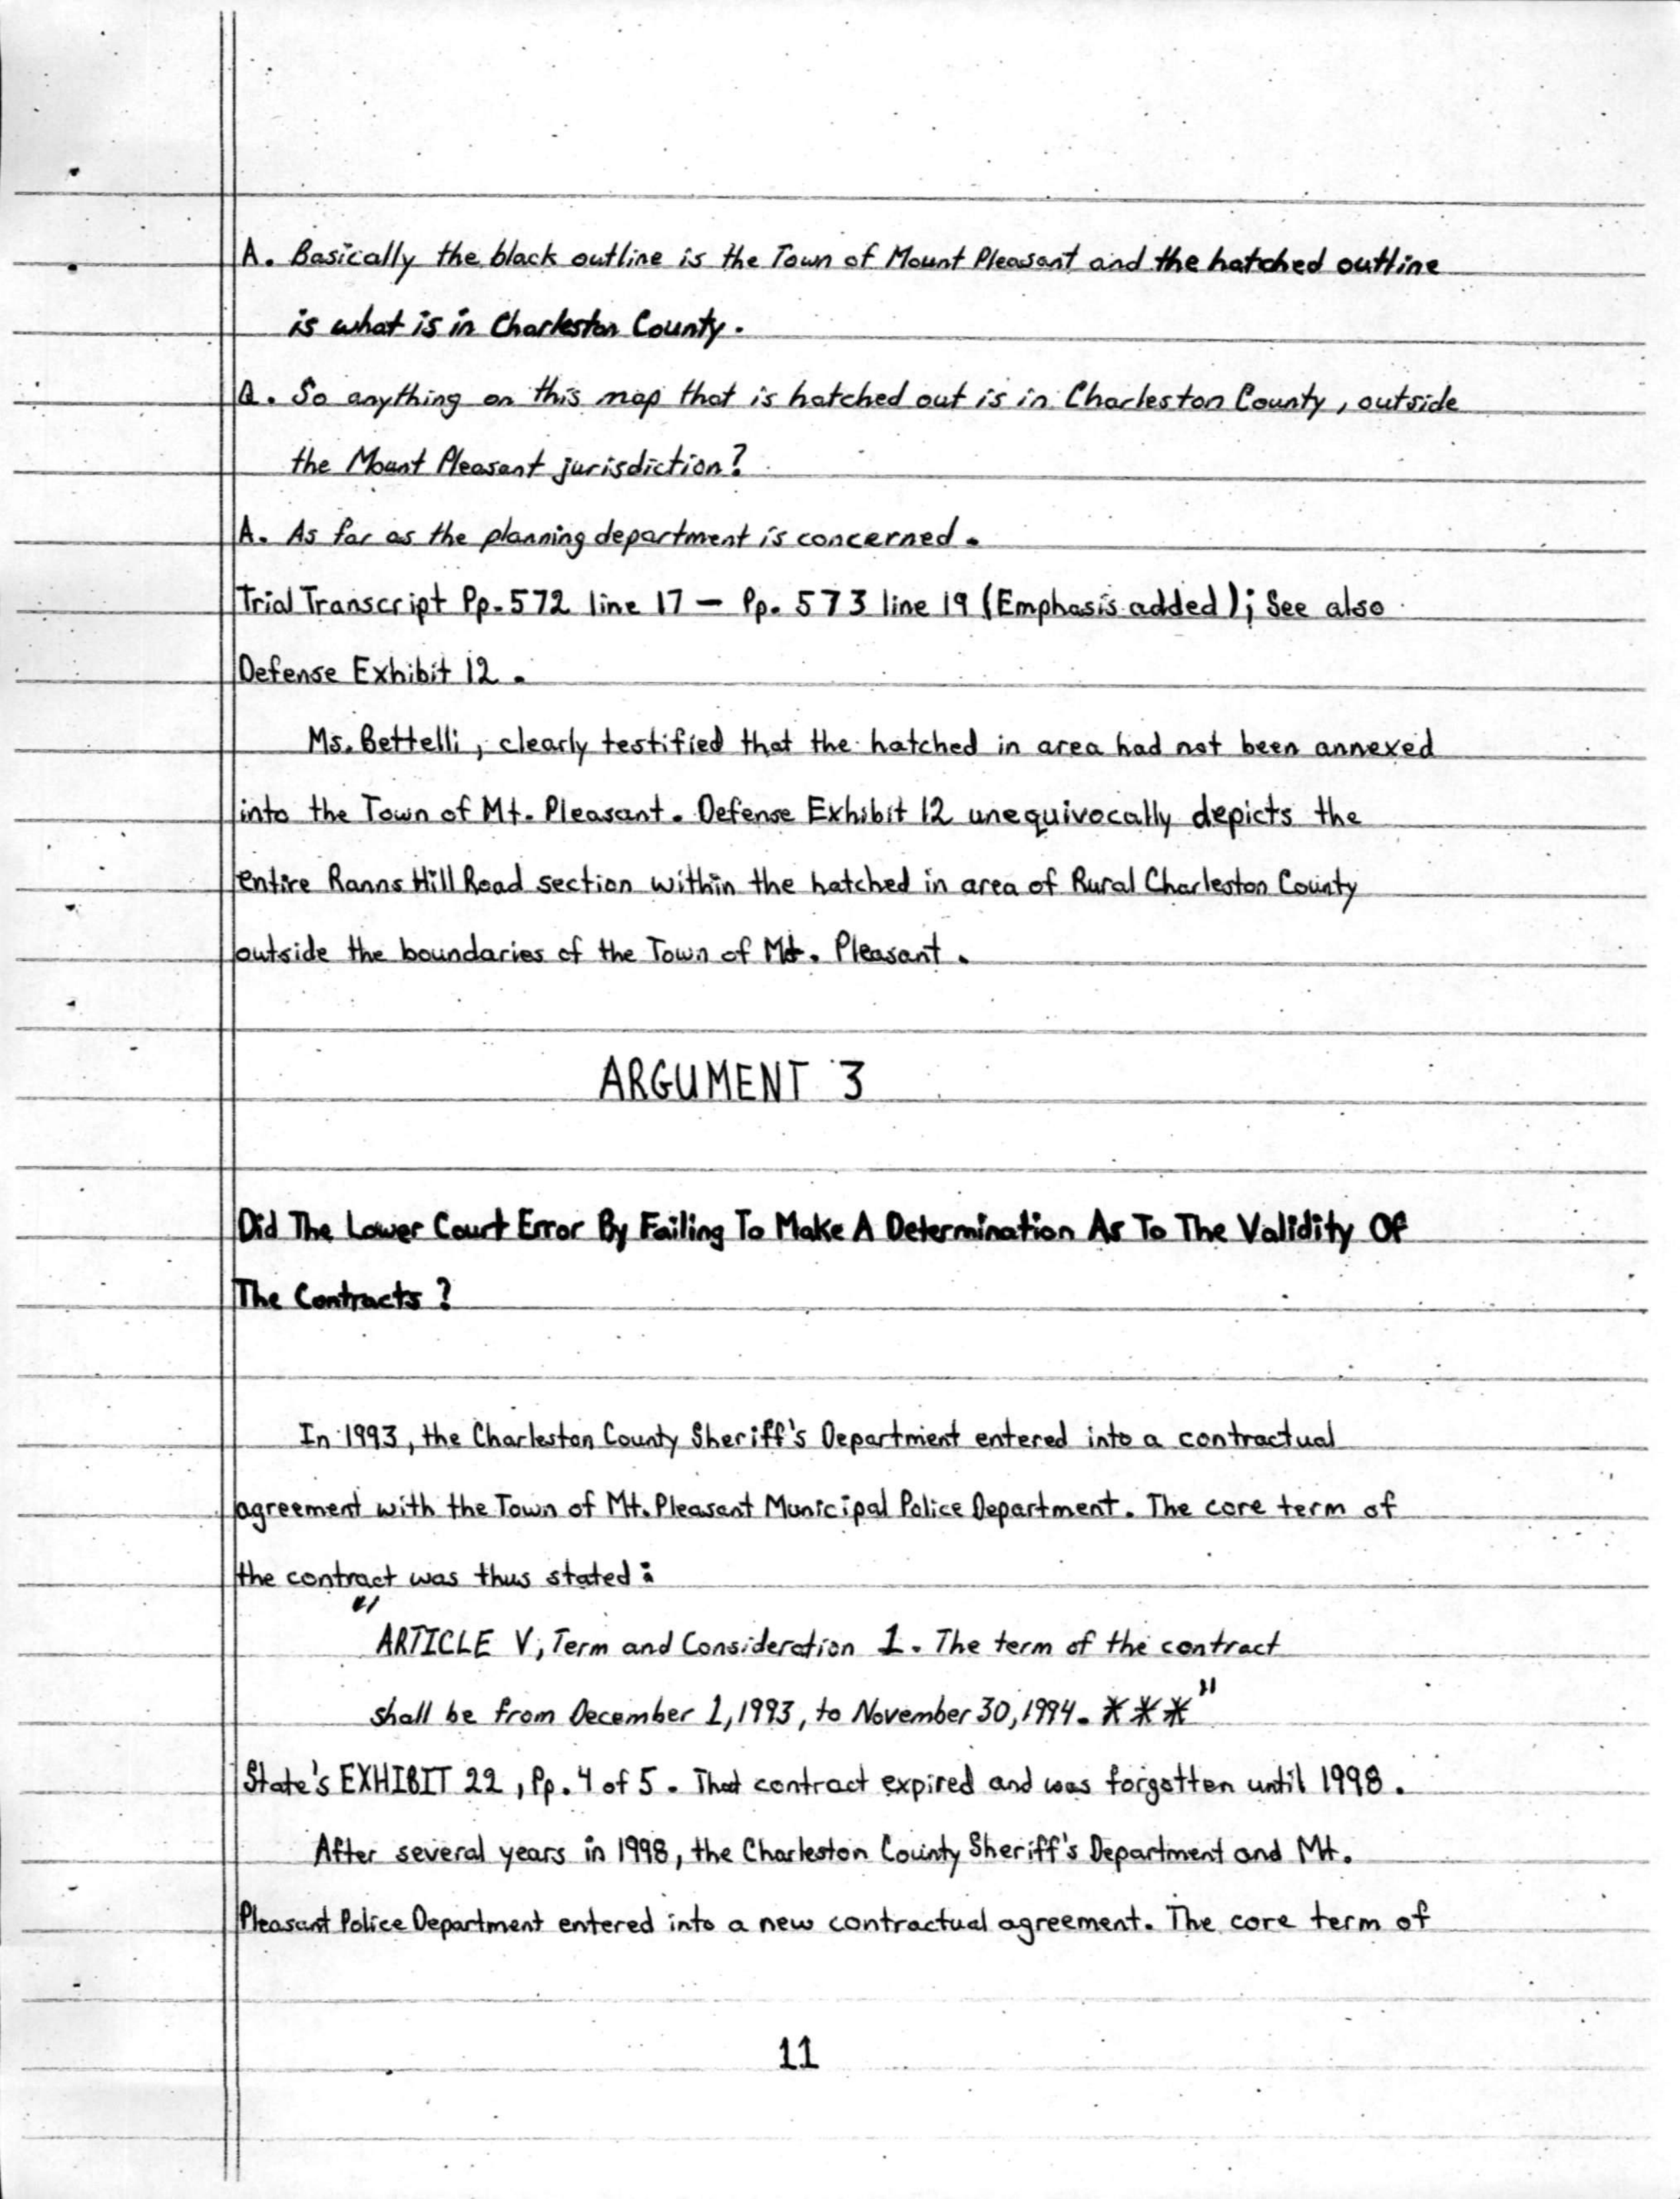 A. Basically the black outline is the Town of Mount Pleasant and the hatched outline
is what is in Charleston County.
Q. So anything on this map that is hatched out is in Charleston County, outside
the Mount Pleasant jurisdiction?
A. As far as the planning department is concerned.
Trial Transcript Pp. 572 line 17 – Pp. 573 line 19 (Emphasis added); See also
Defense Exhibit 12.
Ms. Bettelli, clearly testified that the hatched in area had not been annexed
into the Town of Mt. Pleasant. Defense Exhibit 12 unequivocally depicts the
entire Ranns Hill Road section within the hatched in area of Rural Charleston County
outside the boundaries of the Town of Mt. Pleasant.
ARGUMENT 3
Did The Lower Court Error By Failing To Make A Determination As To The Validity Of
The Contracts?
In 1993, the Charleston County Sheriff's Department entered into a contractual
agreement with the Town of Mt. Pleasant Municipal Police Department. The core term of
the contract was thus stated:
"ARTICLE V, Term and Consideration 1. The term of the contract
shall be from December 1, 1993, to November 30, 1994. ***"
State's EXHIBIT 22, Pp. 4 of 5. That contract expired and was forgotten until 1998.
After several years in 1998, the Charleston County Sheriff's Department and Mt.
Pleasant Police Department entered into a new contractual agreement. The core term of
11